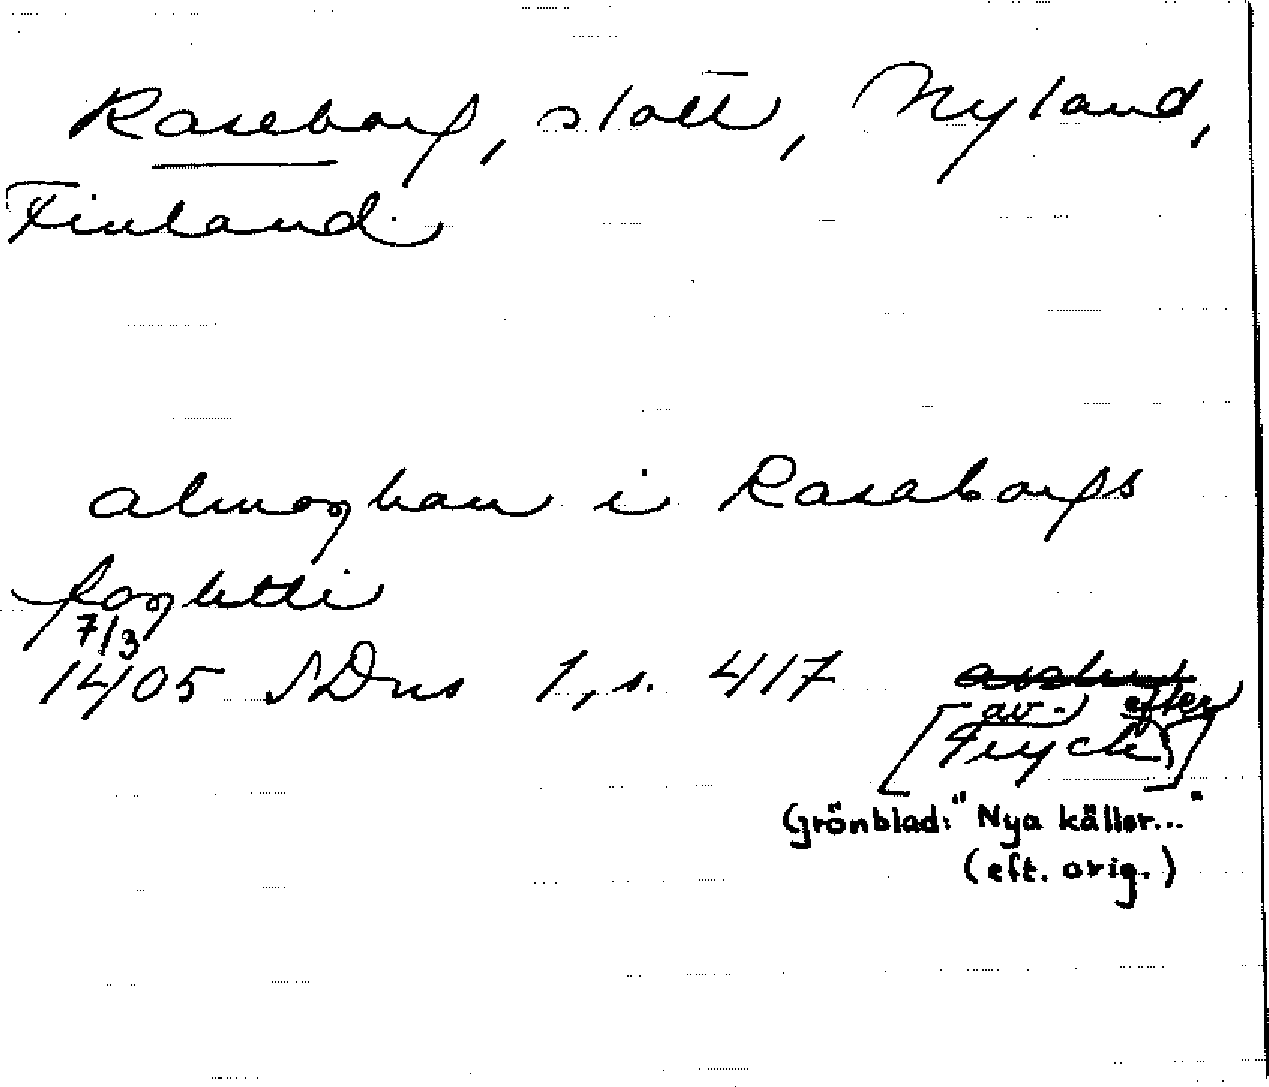 Raseborg, slott, Nyland,
Finland.
almoghan i Rasaborgs
foghetti
7/3
1405 SDns 1, s. 417
[av-) efter
tryck)]
Grönblad: "Nya källor..."
(eft. orig.)